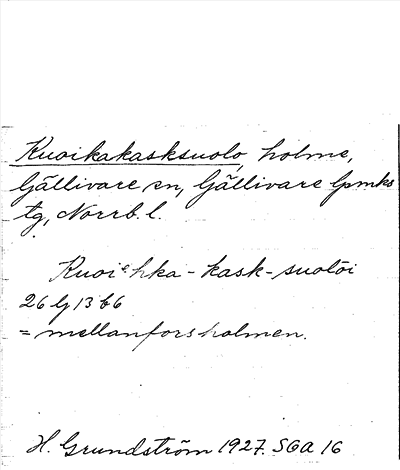 Kuoikakasksuolo, holme,
Gällivare sn, Gällivare lpmks
tg, Norrb. l.
Kuoiᵉhka-kask-suoloi
26 G 13 b6
= mellanforsholmen.
H. Grundström 1927. SOA 16